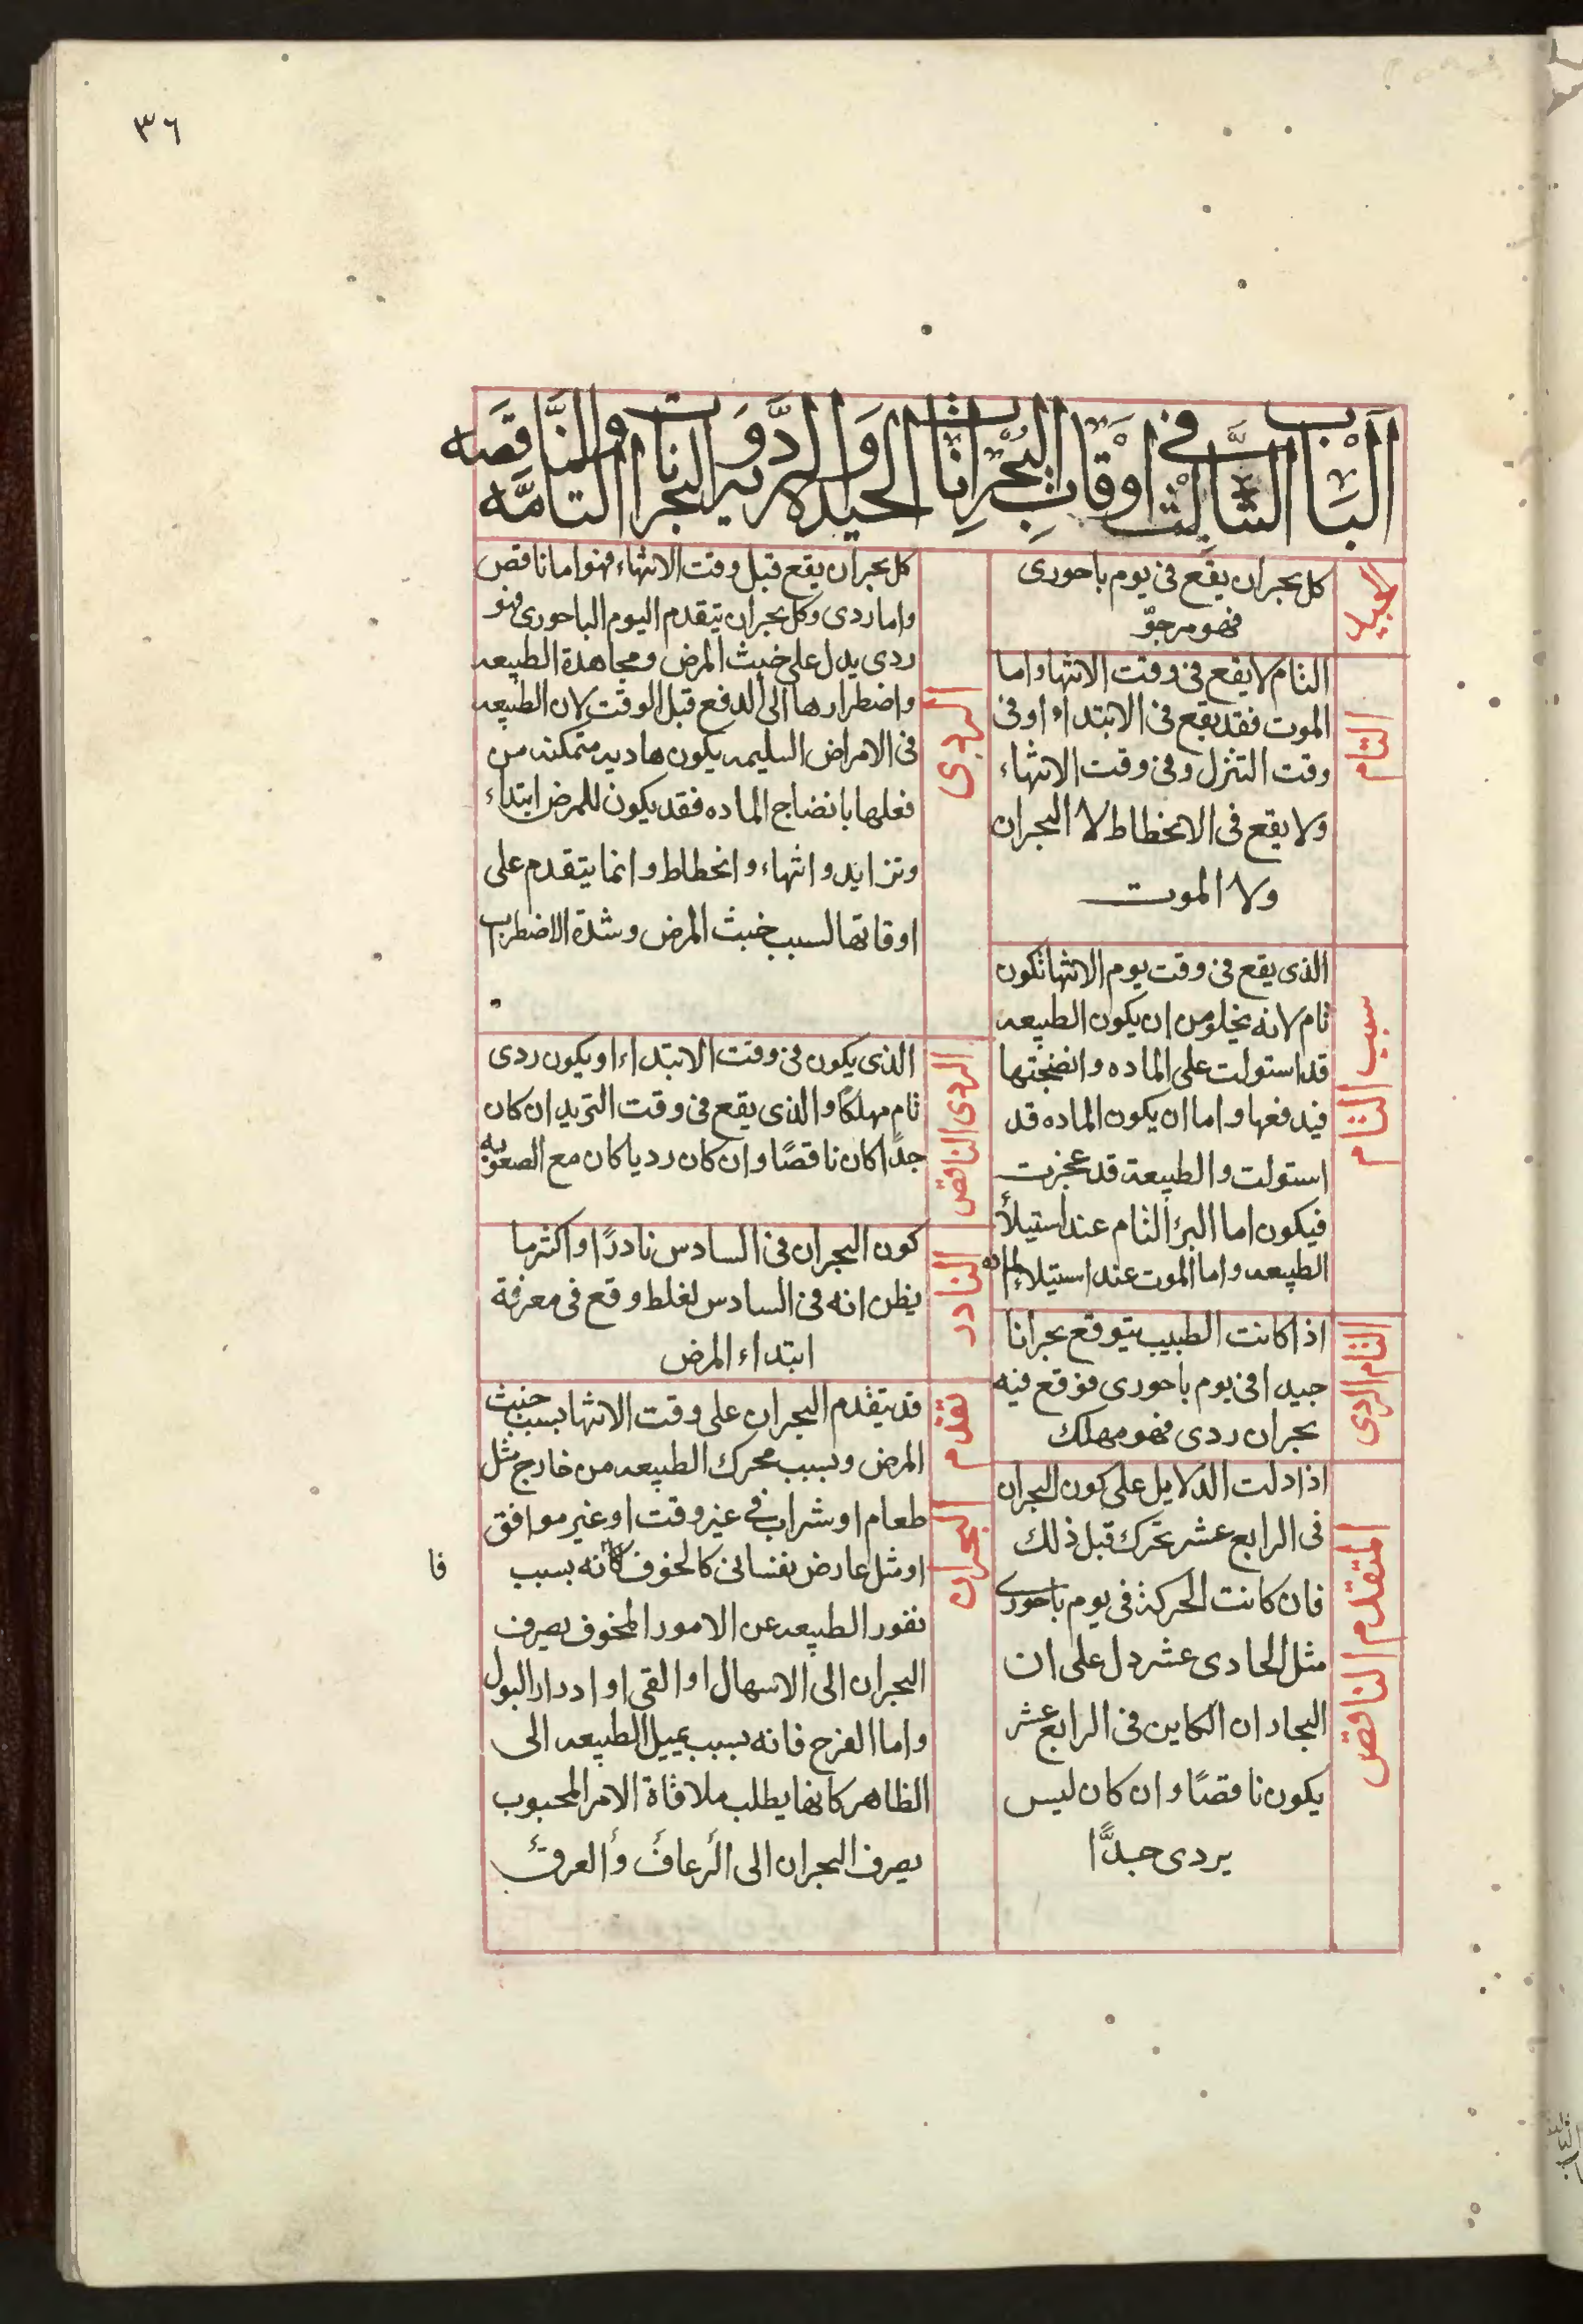 ٣٦
الباب الثالث في اوقات البحرانات الجيده والرديه وَالردَّو البحرانات التامَّه والنَّاقصَه
الجيد
كل بحران يقع فى يوم باحورى
فهو مرجوّ
التام
التام لا يقع فى وقت الانتها واما
الموت فقد يقع فى الابتداء او فى
وقت التنزل وفى وقت الانتهاء
ولا يقع فى الانحطاط لا البحران
ولا الموت
سبب التام
الذى يقع فى وقت يوم الانتها تكون
تام لانه يخلو من ان يكون الطبيعه
قد استولت على الماده وانضجتها
فيدفعها واما ان يكون الماده قد
استولت والطبيعة قد عجزت
فيكون اما البرأ التام عند استيلأ
الطبيعه واما الموت عند استيلاء الماده
التام الردى
اذا كانت الطبيب يتوقع بحرانا
جيدا فى يوم باحورى فوقع فيه
بحران ردى فهو مهلك
المتقدم الناقص
اذا دلت الدلايل على كون البحران
فى الرابع عشر تحرك قبل ذلك
فان كانت الحركة فى يوم باحورى
مثل الحادى عشر دل على ان
البجادان الكاين فى الرابع عشر
يكون ناقصًا وان كان ليس
يردى جدًّا
الردى
كل بحران يقع قبل وقت الانتهاء فهو اما ناقص
واما ردى وكل بحران يتقدم اليوم الباحورى فهو
ردى يدل على خبث المرض ومجاهدة الطبيعه
واضطرارها الى الدفع قبل الوقت لان الطبيعه
فى الامراض السليمه يكون هاديه متمكنه من
فعلها بانضاج الماده فقد يكون للمرض ابتداء
وتزايد وانتهاء وانحطاط وانما يتقدم على
اوقاتها لسبب خبث المرض وشدة الاضطراب
الردى الناقص
الذى يكون فى وقت الابتداء او يكون ردى
تام مهلكًا والذى يقع فى وقت التزيد ان كان
جدًا كان ناقصًا وان كان رديا كان مع الصعوبه
النادر
كون البحران فى السادس نادرًا واكثر ما
يظن انه فى السادس لغلط وقع فى معرفة
ابتداء المرض
تقدم البحران
قد يتقدم البحران على وقت الانتها بسبب خبث
المرض وبسبب محرك الطبيعه من خارج مثل
طعام او شراب فى غير وقت او غير موافق
او مثل عارض نفسانى كالخوف كانه بسبب
فا
نفور الطبيعه عن الامور المخوف يصرف
البحران الى الاسهال او القى او ادرار البول
واما الفرح فانه بسبب يميل الطبيعه الى
الظاهر كانها يطلب ملاقاة الامر المحبوب
يصرف البحران الى الرعاف وأ العرق